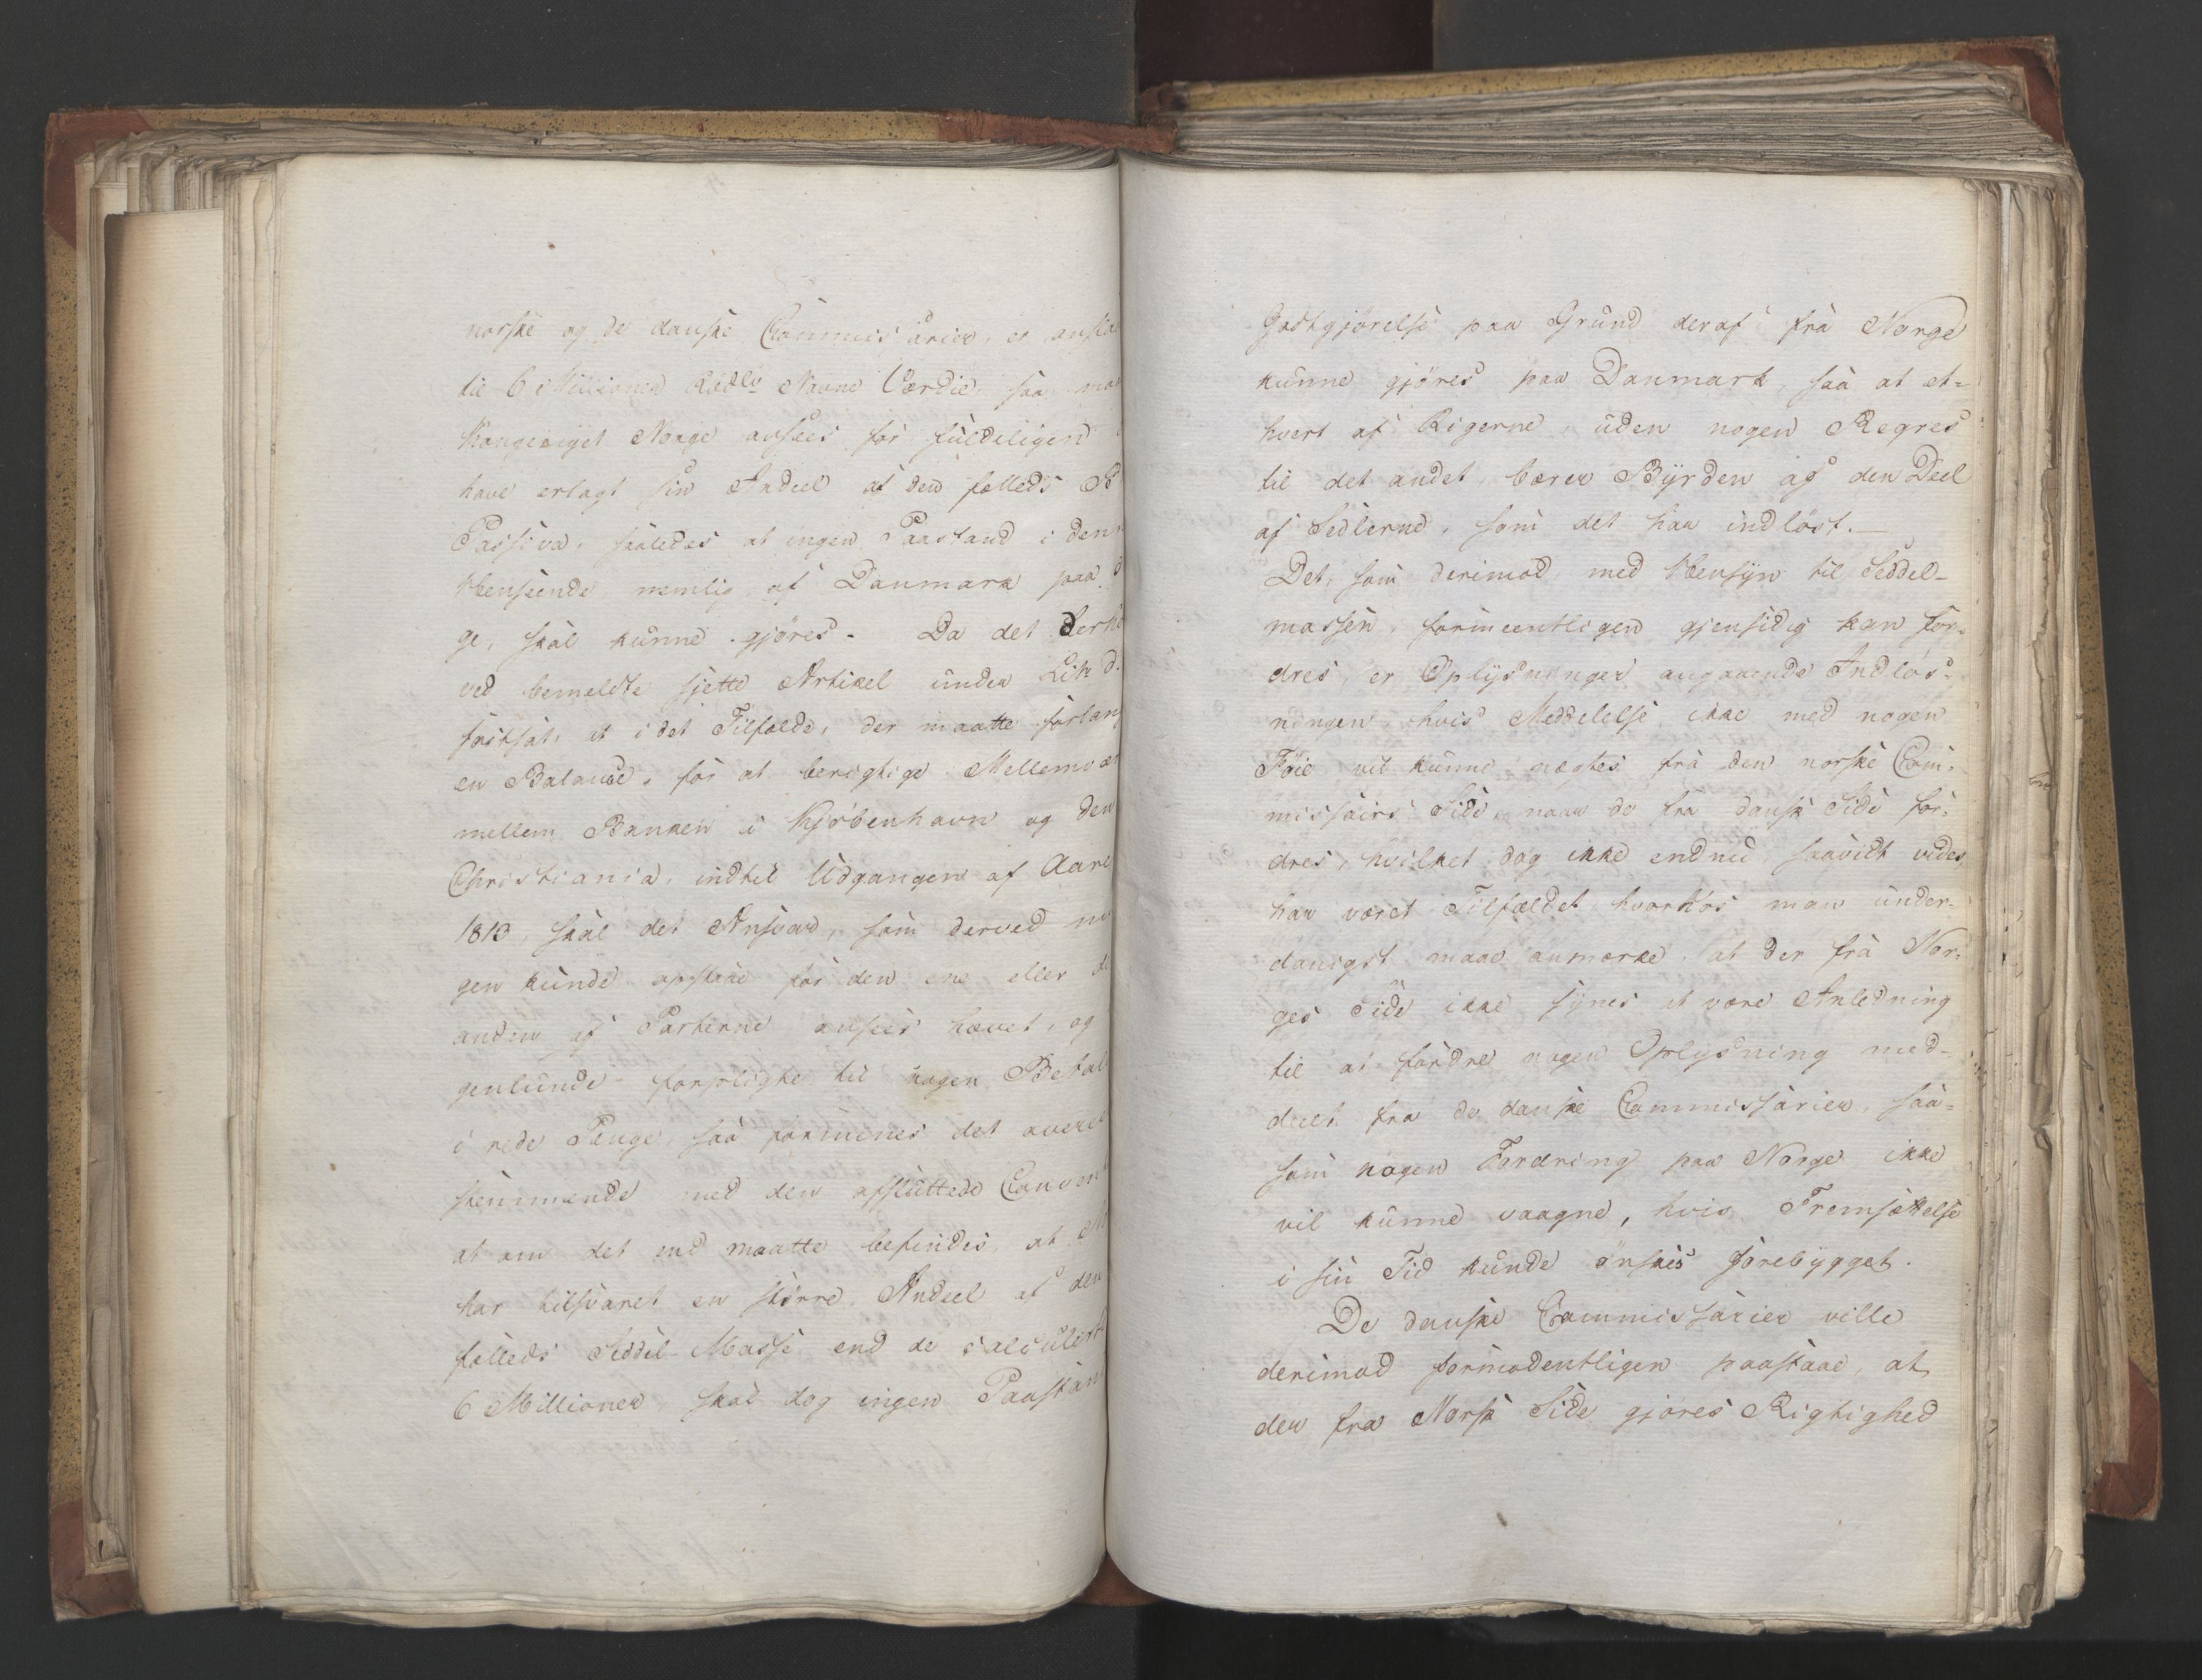 norske og de danske Commissarier, er ansla
til 6 Millioner Rbdlr Navne Værdie, saa maa
Kongeriget Norge ansees for fuldeligen
have erlagt sin Andeel af den fælleds B
Passiva, saaledes at ingen Paastand i denn
Henseende, nemlig af Danmark paa
ge, skal kunne gjøres. Da det derhos
ved bemeldte sjette Artikel under Litr d.
fritsat, at i det Tilfælde, der maatte forlan
en Balance, for at berigtige Mellemvær
mellem Banken i Kjøbenhavn og den
Christiania, indtil Udgangen af Aare
1813, skal det Ansvar, som derved no
gen kunde opstaae for den ene eller d
anden af Parterne ansees hævet, og
genlunde forpligte til nogen Betal
i rede Penge, saa formenes det overee
stemmende med den afsluttede Convent
at om det end maatte befindes, at No
har tilsvaret en større Andeel af den
fælleds Seddel-Masse end de calculerte
6 Millioner, skal dog ingen Paastan
Godtgjørelse paa Grund deraf fra Norge
kunne gjøres paa Danmark, saa at et-
hvert af Rigerne, uden nogen Regres
til det andet, bærer Byrden af den Deel
af Sedlerne, som det har indløst.—
Det, som derimod, med Hensyn til Seddel-
massen, formeentligen gjensidig kan for-
dres, er Oplysninger angaaende Indløs-
ningen, hvis Meddelelse ikke med nogen
Føie vil kunne nægtes fra den norske Com-
missairs Side, naar de fra dansk Side for-
dres, hvilket dog ikke endnu saavidt vides,
har været Tilfældet, hvorhos man under-
danigst maae anmærke, at der fra Nor-
ges Side ikke synes at være Anledning
til at fordre nogen Oplysning med-
deelt fra de danske Commissarier, saa-
som nogen Fordring paa Norge ikke
vil kunne vaagne, hvis Fremsættelse
i sin Tid kunde ønskes forebygget.
De danske Commissarier ville
derimod formodentligen paastaae, at
der fra Norsk Side gjøres Rigtighed